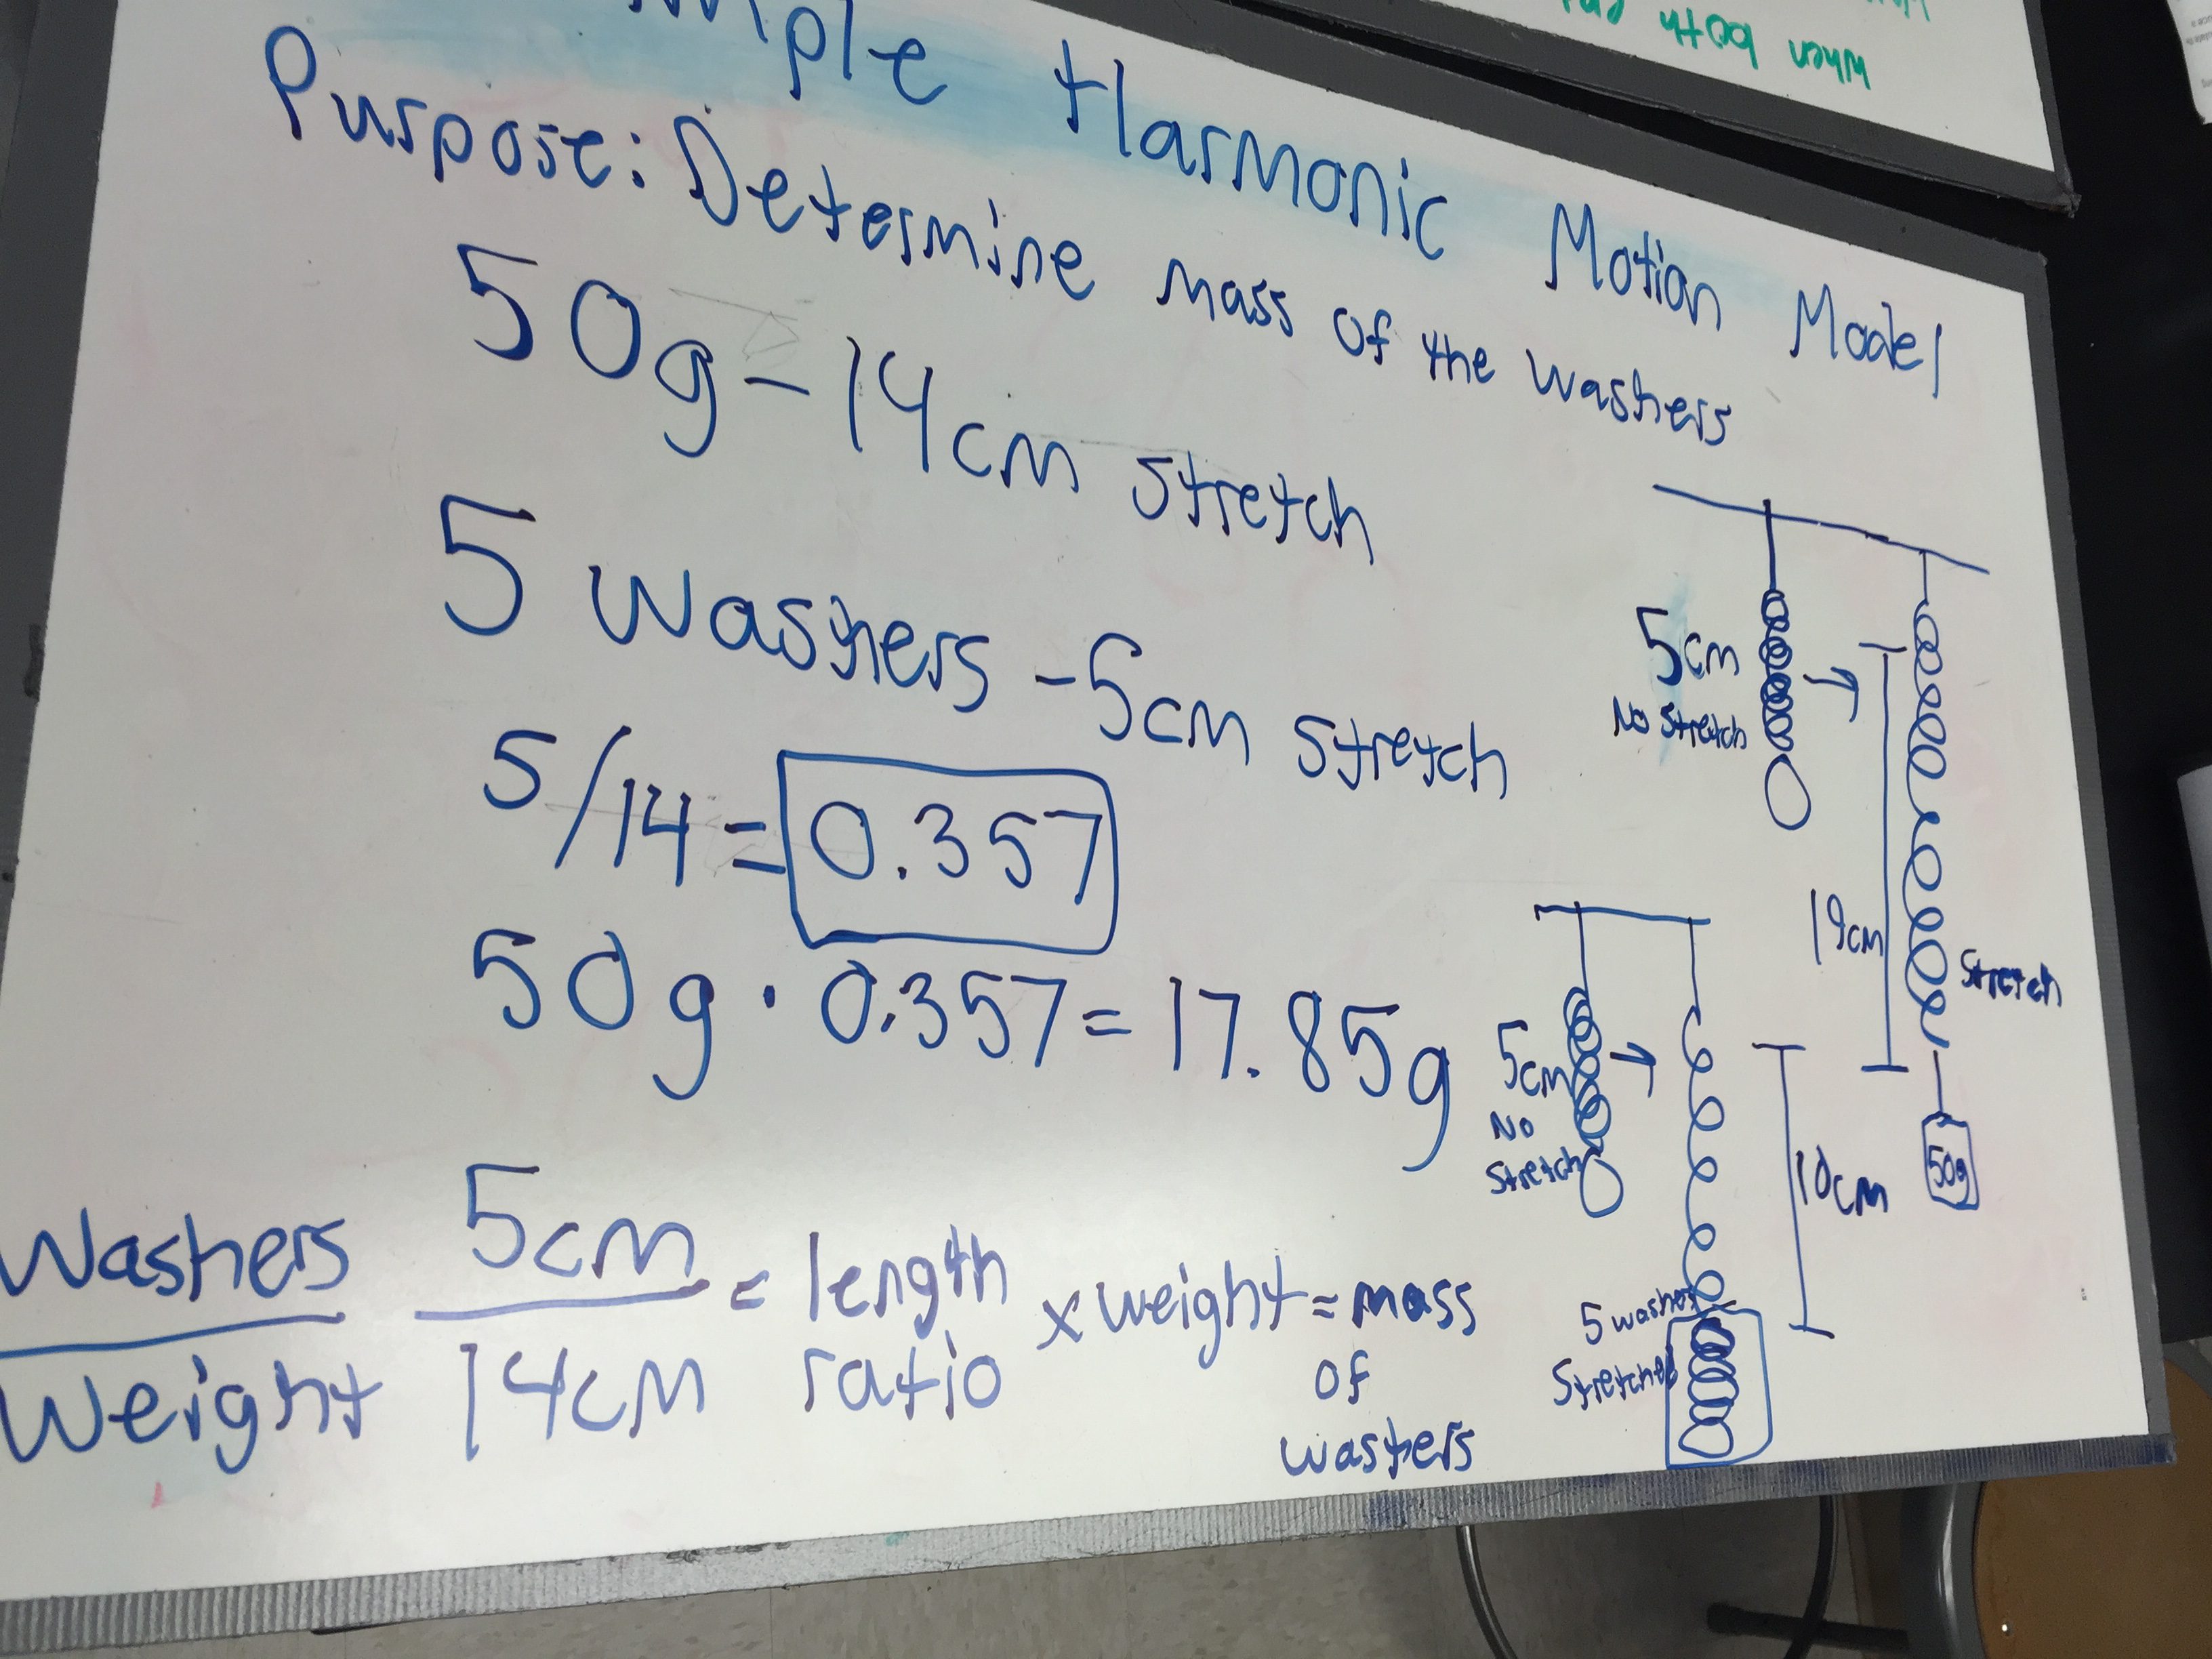 Harmonic Motion Model
Purpose: Determine mass of the washers
50g - 14cm stretch
5 washers - 5cm stretch
5/14 = 0.357
50g · 0.357 = 17.85g
Washers 5cm = length x weight = mass
Weight 14cm ratio of
washers
5cm
No stretch
19cm
stretch
50g
5cm
No
stretch
10cm
5 washers
stretched
when both